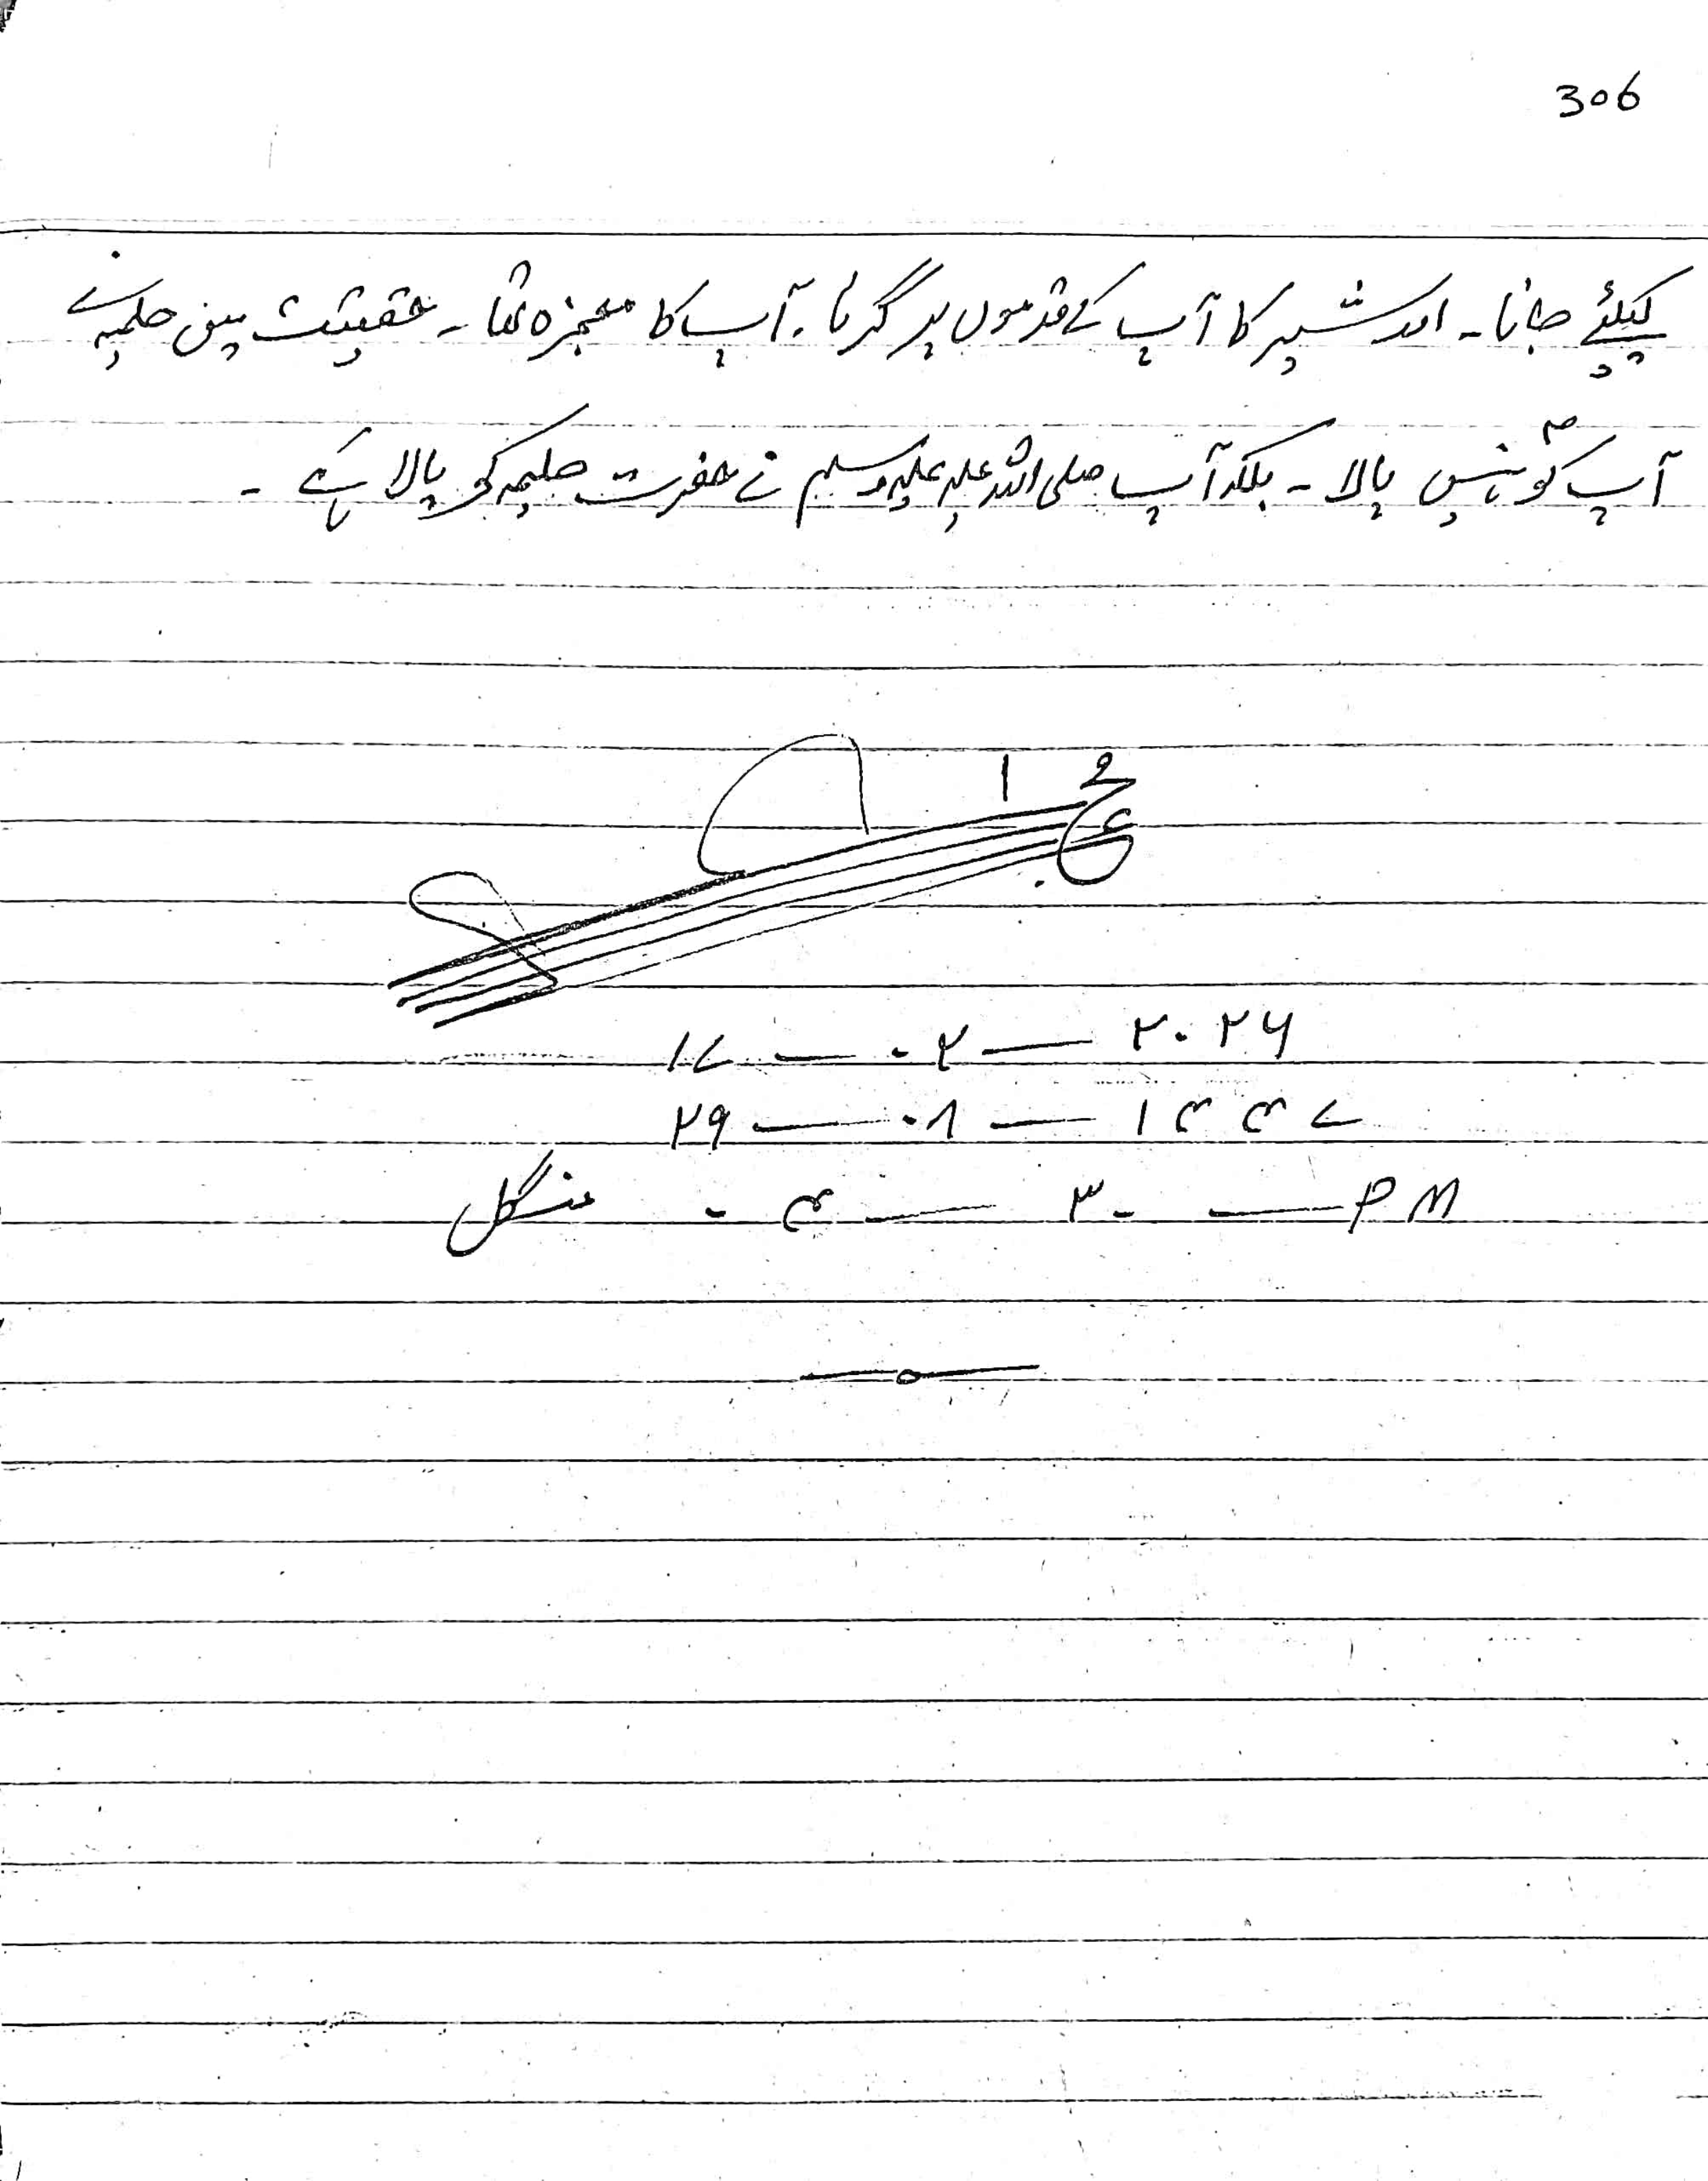 306
کیلئے جانا ۔ اور شیر کا آپ کے قدموں پر گرنا ۔ آپ کا معجزہ تھا ۔ حقیقت میں حلیمہ نے
آپؐ کو نہیں پالا ۔ بلکہ آپ صلی اللہ علیہ علیہ وسلم نے حضرت حلیمہ کو پالا ہے ۔
۱۷ — ۰۲ — ۲۰۲۶
۲۹ — ۰۸ — ۱۴۴۷
منگل ۰۴ — ۳۰ — PM